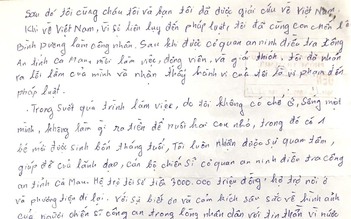 Sau đó tôi cùng cháu tôi và bạn tôi đã được giải cứu về Việt Nam,
Khi về Việt Nam, vì sợ liên lụy đến pháp luật tôi đã cùng con đến
Bình Dương làm công nhân. Sau khi được cơ quan an ninh điều tra Công
An tỉnh Cà Mau mời làm việc, động viên, và giải thích, tôi đã nhận
ra lỗi lầm của mình và nhận thấy hành vi của tôi là vi phạm đến
pháp luật.
- Trong suốt quá trình làm việc, do tôi không có chỗ ở, sống một
mình, không làm gì ra tiền để nuôi hai con nhỏ, trong đó có 1
bé mới được sinh bốn tháng tuổi, Tôi luôn nhận được sự quan tâm,
giúp đỡ của lãnh đạo, cán bộ chiến sĩ cơ quan an ninh điều tra công
an tỉnh Cà Mau. Hỗ trợ tôi số tiền 3000.000 triệu đồng, hỗ trợ nơi ở
và phương tiện đi lại. Với sự biết ơn và cảm kích sâu sắc về hình ảnh
của người chiến sĩ công an trong lòng nhân dân với tinh thần vì nước